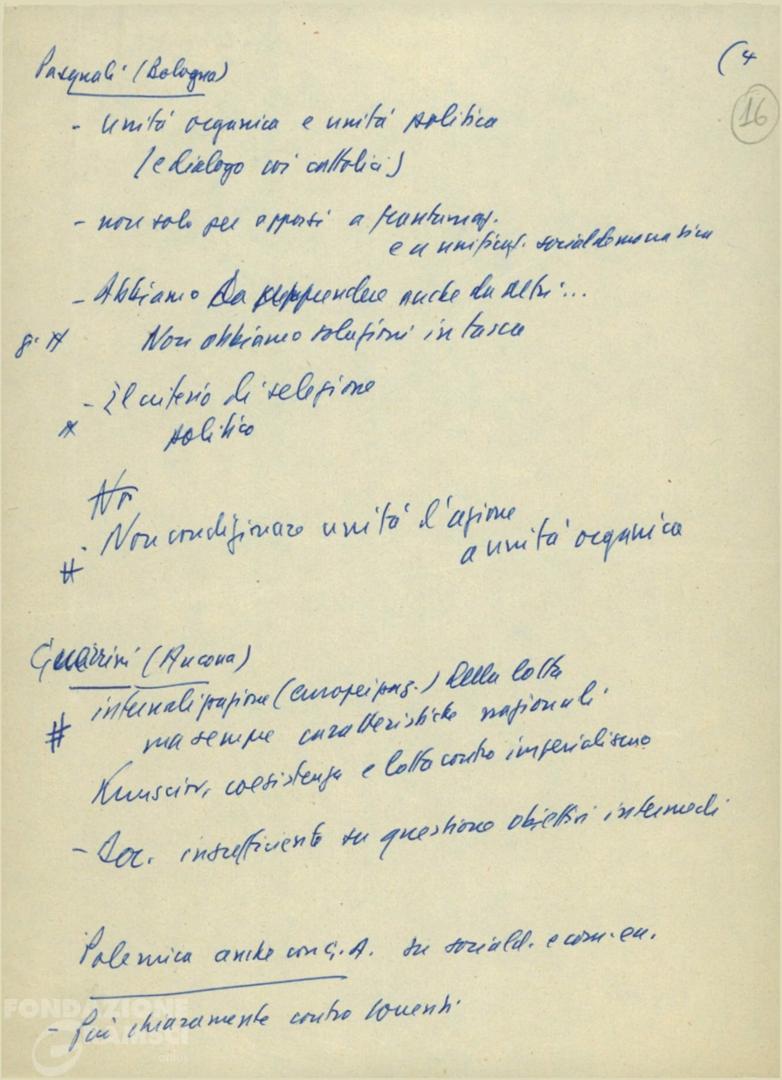 (4
16
Pasquali (Bologna)
- unità organica e unità politica
(e dialogo coi cattolici)
- non solo per opporsi a frantumaz.
e a unificaz. socialdemocratica
- Abbiamo da apprendere anche da altri...
Non abbiamo soluzioni in tasca
- Il criterio di selezione
politico
No
- Non condizionare unità d'azione
a unità organica
Guerrini (Ancona)
# internalizzazione (europeizzaz.) della lotta
ma sempre caratteristiche nazionali
coesistenza e lotta contro imperialismo
- Doc. insufficiente su questione obiettivi intermedi
Polemica anche con G.A. su sociald. e com. eu.
- Più chiaramente contro
FONDAZIONE
GRAMSCI
onlus